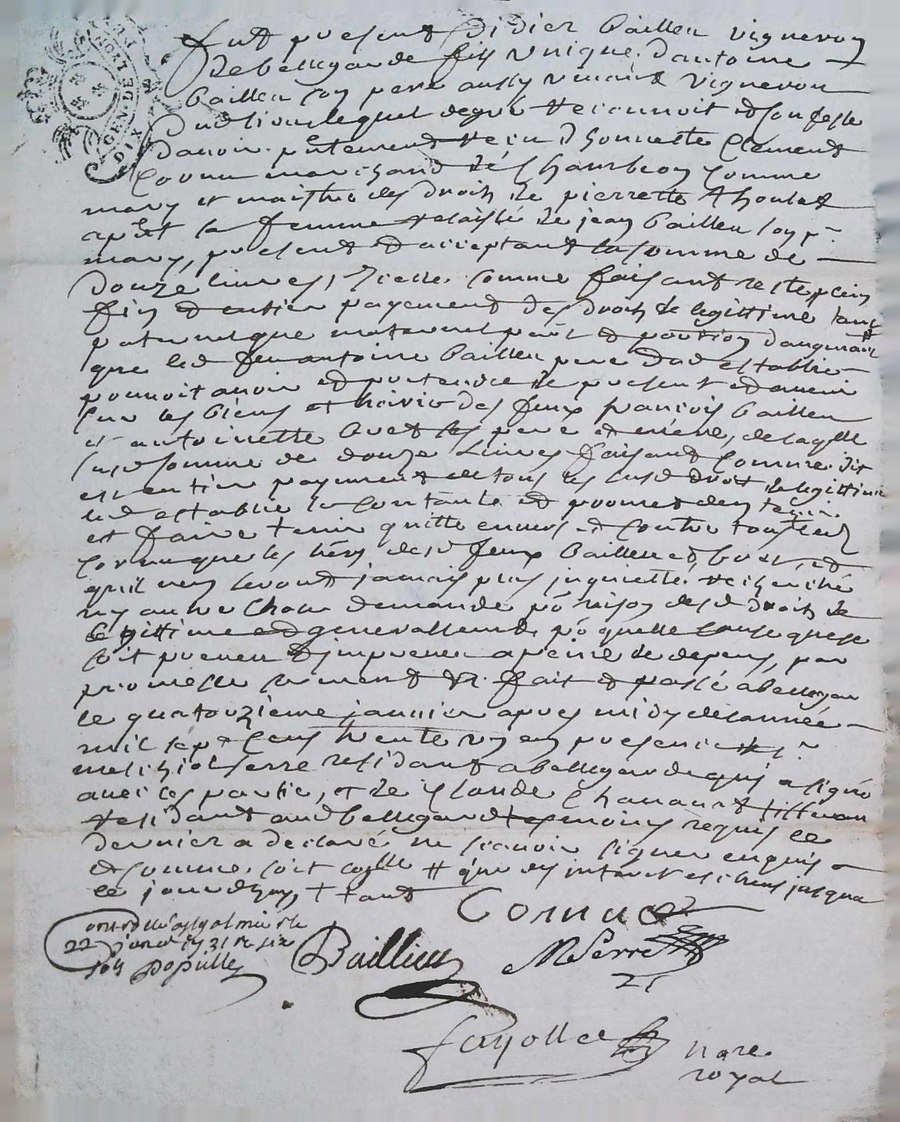 GEN DE LYON
DIX
Fut present Didier Baillieu vigneron
de bellegarde fils unique d'antoine
Baillieu son pere aussy vivant vigneron
dud lieu lequel de gre reconnoit et confesse
d'avoir pntement receu d'honneste Clement
Cornu marchand de Chambeon comme
mary et maistre des droits de pierrette Thoulet
aprēt la femme relaissé de jean Baillieu son pr
mary, present et acceptant la somme de
douze livres, Icelle comme faisant reste plein
fin et entier payement des droits de legittime tant
paternel que maternel part et portion d'augment #
que led feu antoine Baillieu pere dud establie
pouvoit avoir et pretendre de present et avenir
sur les biens et hoirie des feux francois Baillieu
et antoinette ses pere et mere, de laqlle
susd somme de douze livres faisant comme dit
est entier payement de tous les susd droits de legittime
led establie se contante et promet den tenir
et faire tenir quitte envers et contre tous led
Cornu que les hers desd feux Baillieu et, et
qu'il ne seront jamais plus inquiette recherché
ny autre chose demandé pr raison desd droits de
legittime et generallement pr quelle cause que ce
soit preveu et impreveu a peine de depens, par
promesse serment &c. fait et passé a bellegarde
le quatorzieme janvier apres midy de l'année
mil sept cens trente un en presence de sr
melchior serre residant a bellegarde qui a signé
avec les partie, et de Claude Chanavat tisseran
residant aud bellegarde temoins requis ce
dernier a declaré ne scavoir signer enquis
et sommé, soit # que des interest escheus jusqua
ce jourdhuy † tant
Cornu
22 janv 1731 R six
sols Populle
Baillieu
M Serre
fayolle
nore
royal